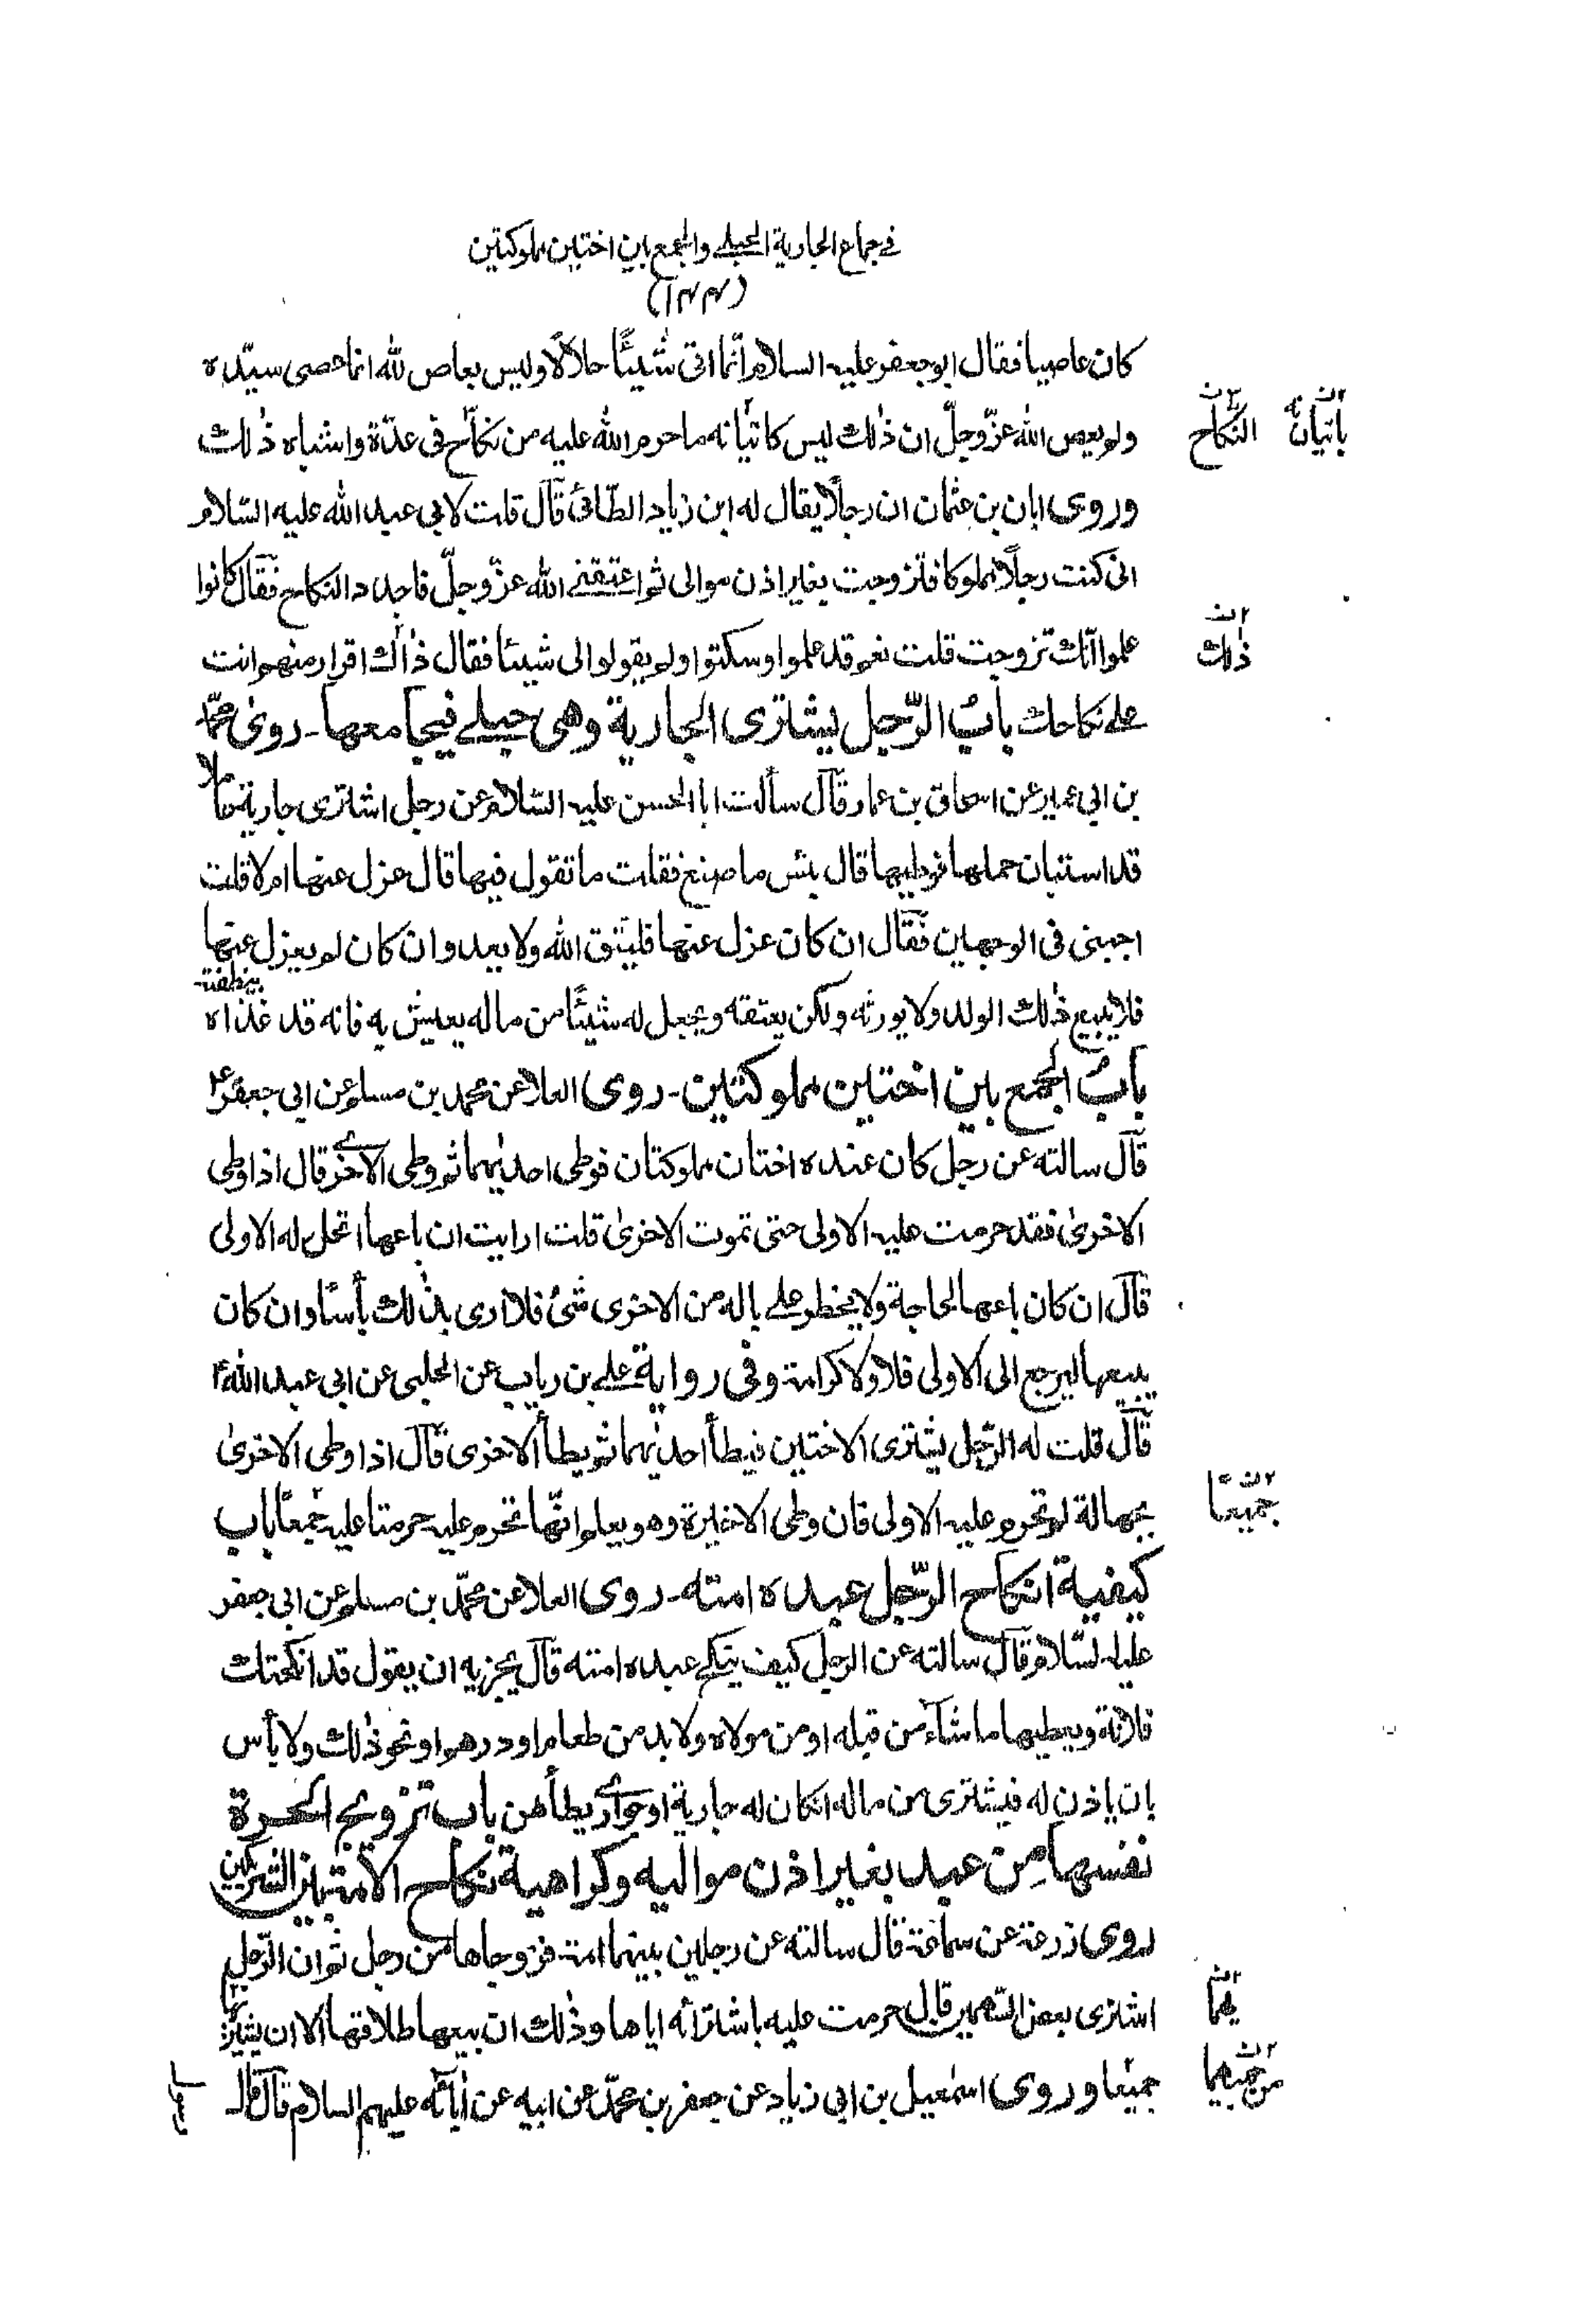 في جماع الجارية الحبلے والجمع بين اختين مملوكتين
كان عاصيا فقال ابو جعفر عليه السلام انّما اتى شيئًا حلالًا وليس بعاص لله انما عصى سيّده
ولم يعص الله عزّوجلّ ان ذٰلك ليس كاتيانه ما حرم الله عليه من نكاح فى عدّة واشباه ذٰلك
باتيانه
النّكاح
وروى ابان بن عثمان ان رجلًا يقال له ابن زياد الطّائى قال قلت لابى عبد الله عليه السّلام
انى كنت رجلًا مملوكا فتزوجت بغير اذن موالى ثم اعتقنے الله عزّوجلّ فاجدد النكاح فقال كانوا
علموا انّك تزوجت قلت نعم قد علموا وسكتوا ولم يقولوا لى شيئا فقال ذٰلك اقرار منهم انت
ذٰلك
علے نكاحك بابُ الرّجل يشترى الجارية وهى حبلے فيجامعها ـ روىٰ محمّد
بن ابى عمير عن اسحاق بن عمار قال سألت ابا الحسن عليه السّلام عن رجل اشترى جارية حاملا
قد استبان حملها فوطيها قال بئس ما صنع فقلت ما تقول فيها قال عزل عنها ام لا قلت
اجبنى فى الوجهين فقال ان كان عزل عنها فليتق الله ولا يعد وان كان لم يعزل عنها
فلا يبيع ذٰلك الولد ولا يورثه ولكن يعتقه ويجعل له شيئًا من ماله يعيش به فانه قد غذاه
بنطفته
بابُ الجمع بين اختين مملوكتين ـ روى العلا عن محمد بن مسلم عن ابى جعفر ع
قال سالته عن رجل كان عنده اختان مملوكتان فوطى احدٰيهما ثم وطى الاخرے قال اذا وطى
الاخرىٰ فقد حرمت عليه الاولى حتى تموت الاخرىٰ قلت ارايت ان باعها اتحل له الاولى
قال ان كان باعها لحاجة ولا يخطر علے باله من الاخرى شئ فلا ارى بذٰلك بأسًا وان كان
يبيعها ليرجع الى الاولى فلا ولا كرامة وفى رواية علے بن رياب عن الحلبى عن ابى عبد الله ع
قال قلت له الرّجل يشترى الاختين فيطأ احدٰيهما ثم يطأ الاخرى قال اذا وطى الاخرىٰ
بجهالة لم تحرم عليه الاولى فان وطى الاخيرة وهو يعلم انّها تحرم عليه حرمتا عليه جمعًا باب
جميعًا
كيفية انكاح الرّجل عبده امته ـ روى العلا عن محمّد بن مسلم عن ابى جعفر
عليه السّلام قال سالته عن الرجل كيف ينكح عبده امته قال يجزيه ان يقول قد انكحتك
فلانة ويعطيها ما شاء من قبله او من مولاه ولا بد من طعام او درهم او نحو ذٰلك ولا بأس
بان ياذن له فيشترى من ماله انكان له جارية او جوارے يطأهن باب تزويج الحرة
نفسها مِن عبد بغير اذن مواليه وكراهية نكاح الامة بين الشريكين
روى زرعة عن سماعة قال سالته عن رجلين بينهما امة فزوجاها من رجل ثم ان الرّجل
اشترى بعض السّهمين قال حرمت عليه باشترائه اياها وذٰلك ان بيعها طلاقها الا ان يشتريها
جميعًا وروى اسمٰعيل بن ابى زياد عن جعفر بن محمّد عن ابيه عن اٰبائه عليهم السلام قال قال
من جميعهما
رسول